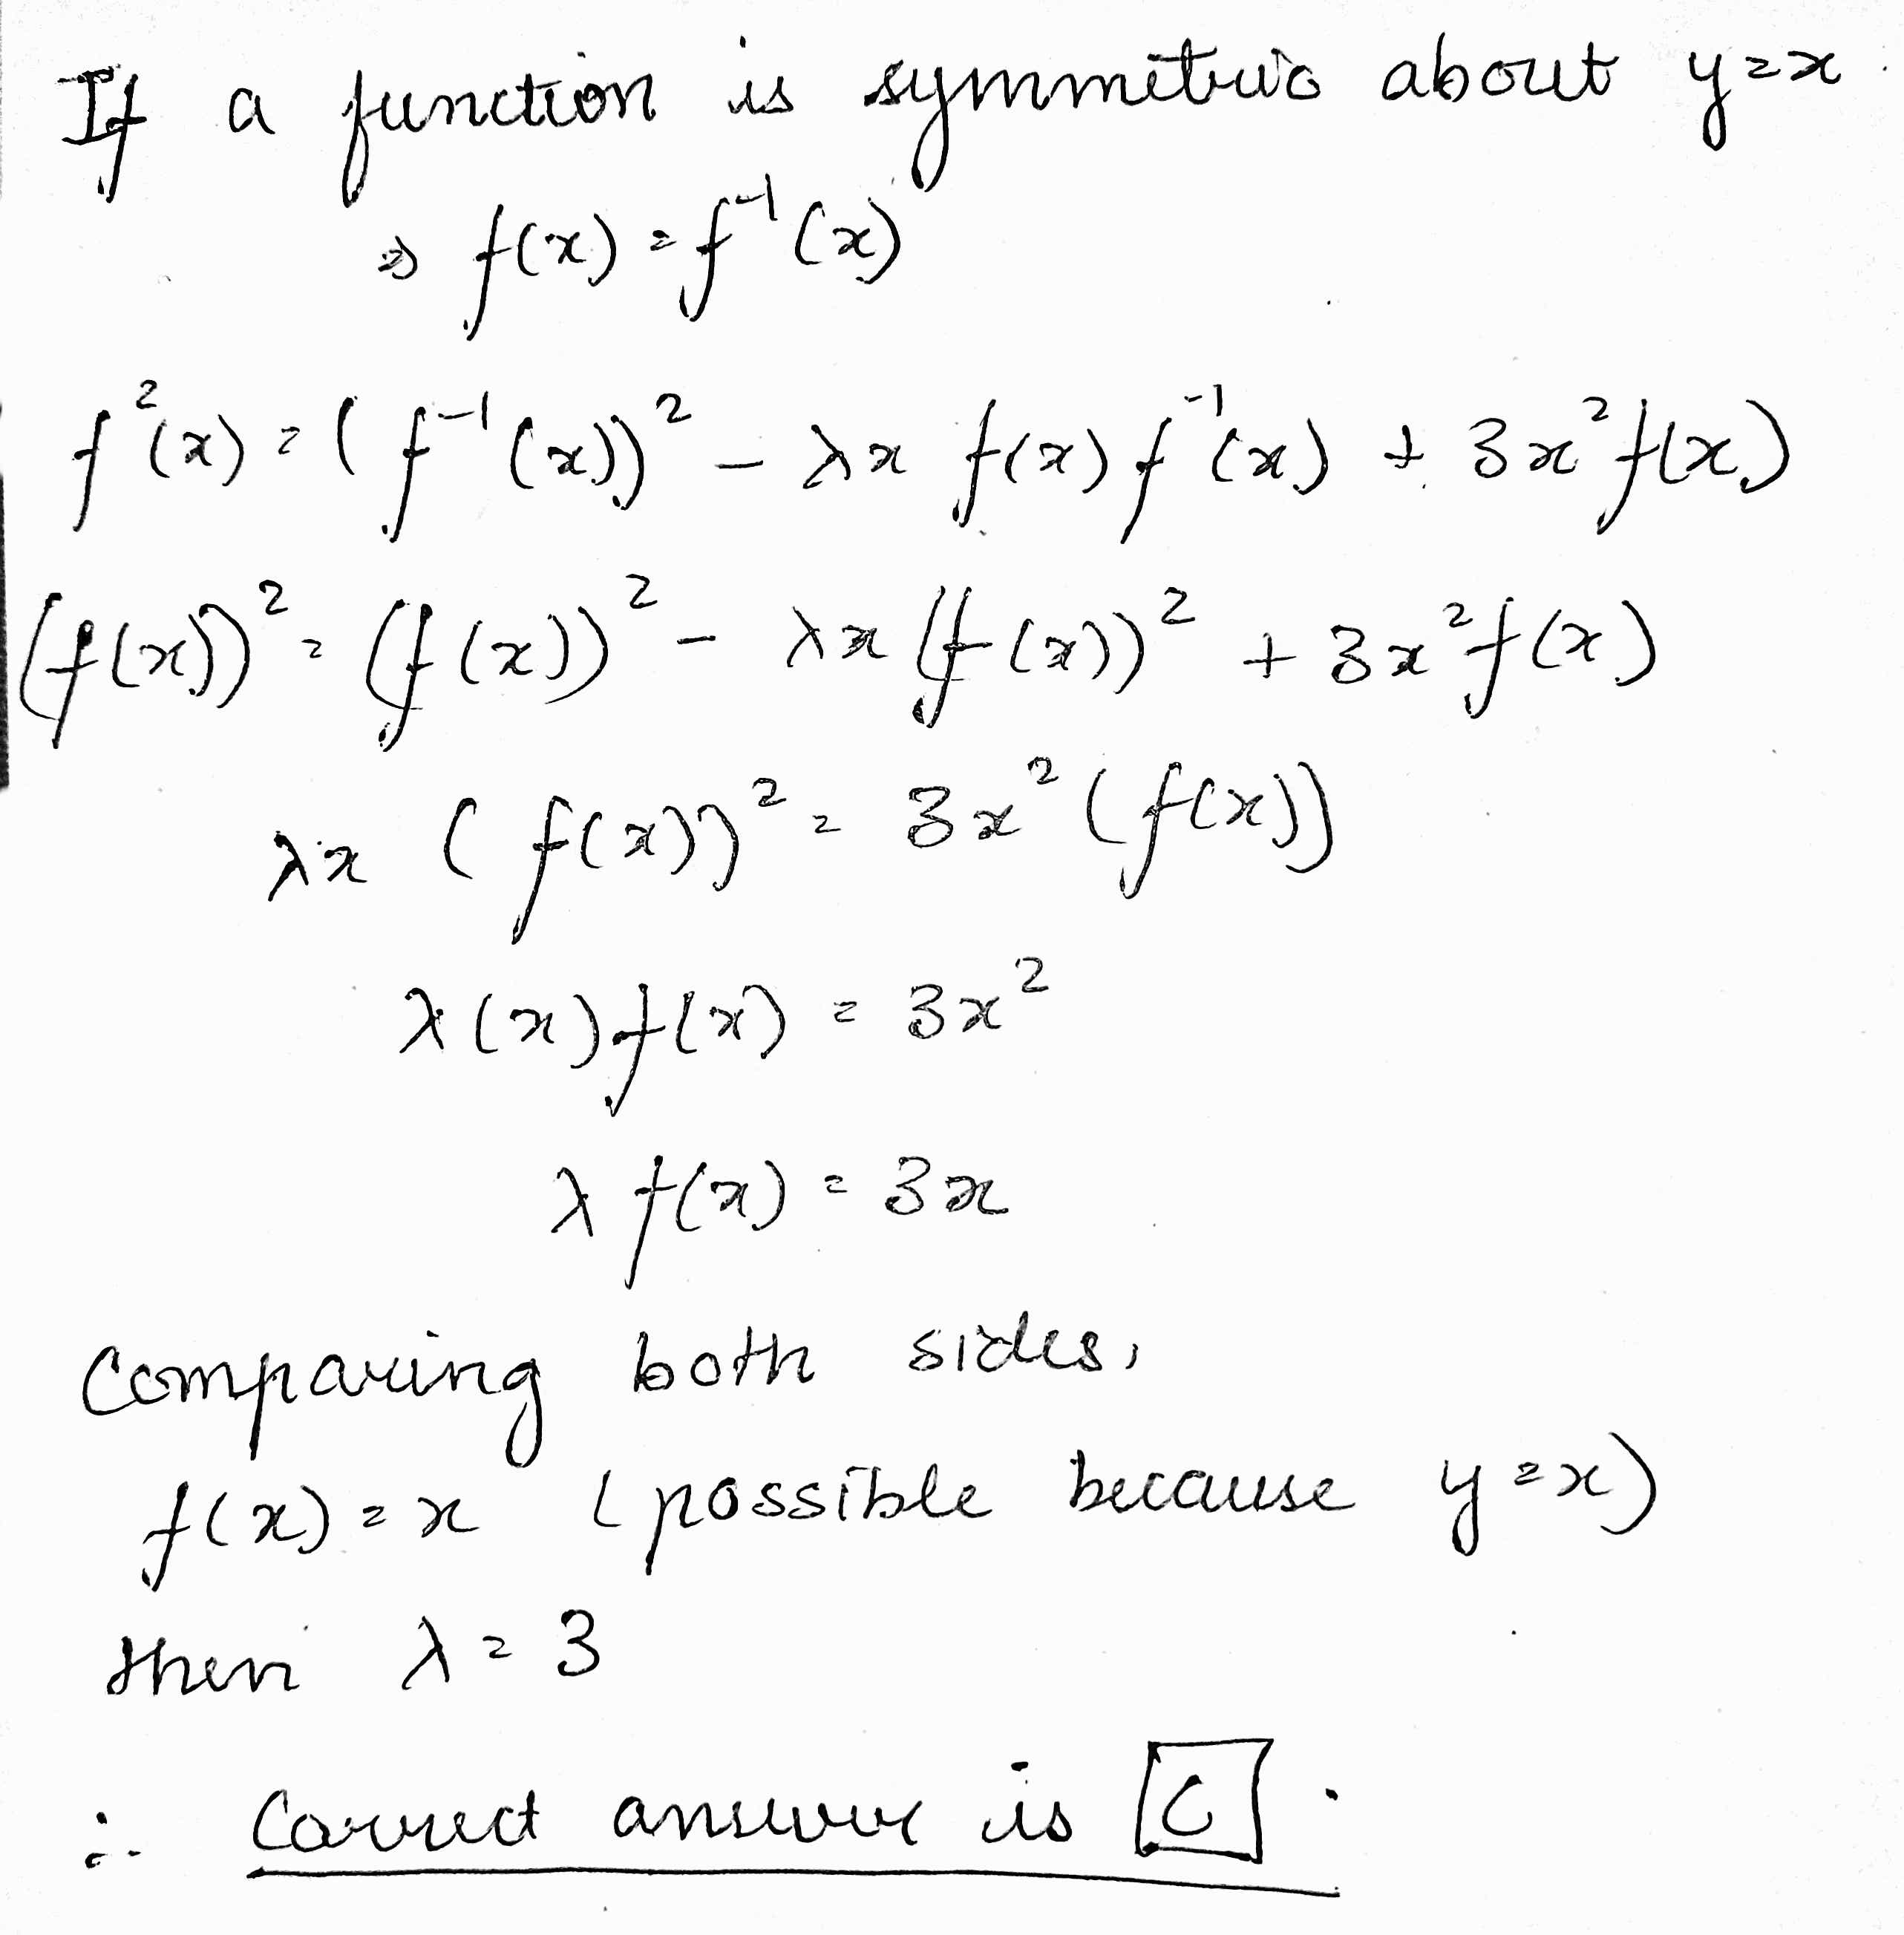 If a function is symmetric about y=x.
⇒ f(x) = f⁻¹(x)
f²(x) = (f⁻¹(x))² - λx f(x) f⁻¹(x) + 3x² f(x)
(f(x))² = (f(x))² - λx (f(x))² + 3x² f(x)
λx (f(x))² = 3x² (f(x))
λ(x) f(x) = 3x²
λ f(x) = 3x
Comparing both sides,
f(x) = x (possible because y=x)
then λ = 3
∴ Correct answer is C.